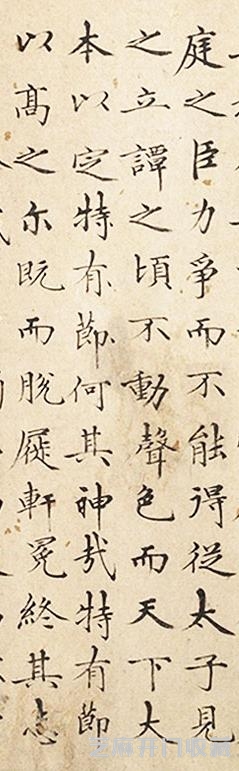 庭之臣力爭而不能得從太子見
之立譚之頃不動聲色而天下大
本以定特有節何其神哉特有節
以髙之尔既而脫屣軒冕終其志